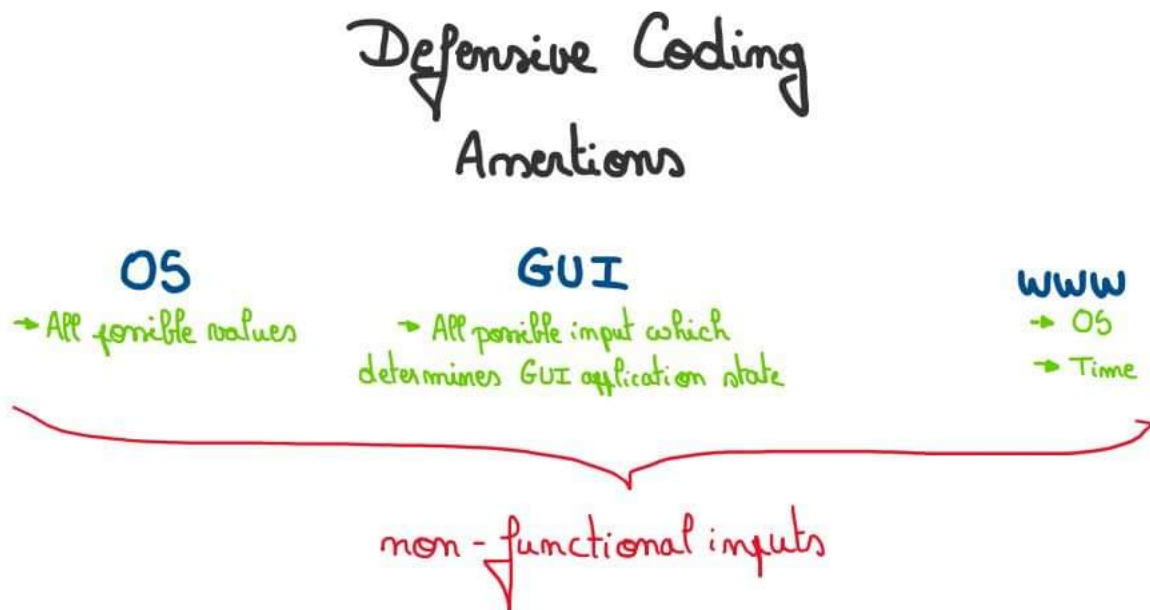 Defensive Coding
Assertions
OS
→ All possible values
GUI
→ All possible input which
determines GUI application state
WWW
→ OS
→ Time
non-functional inputs